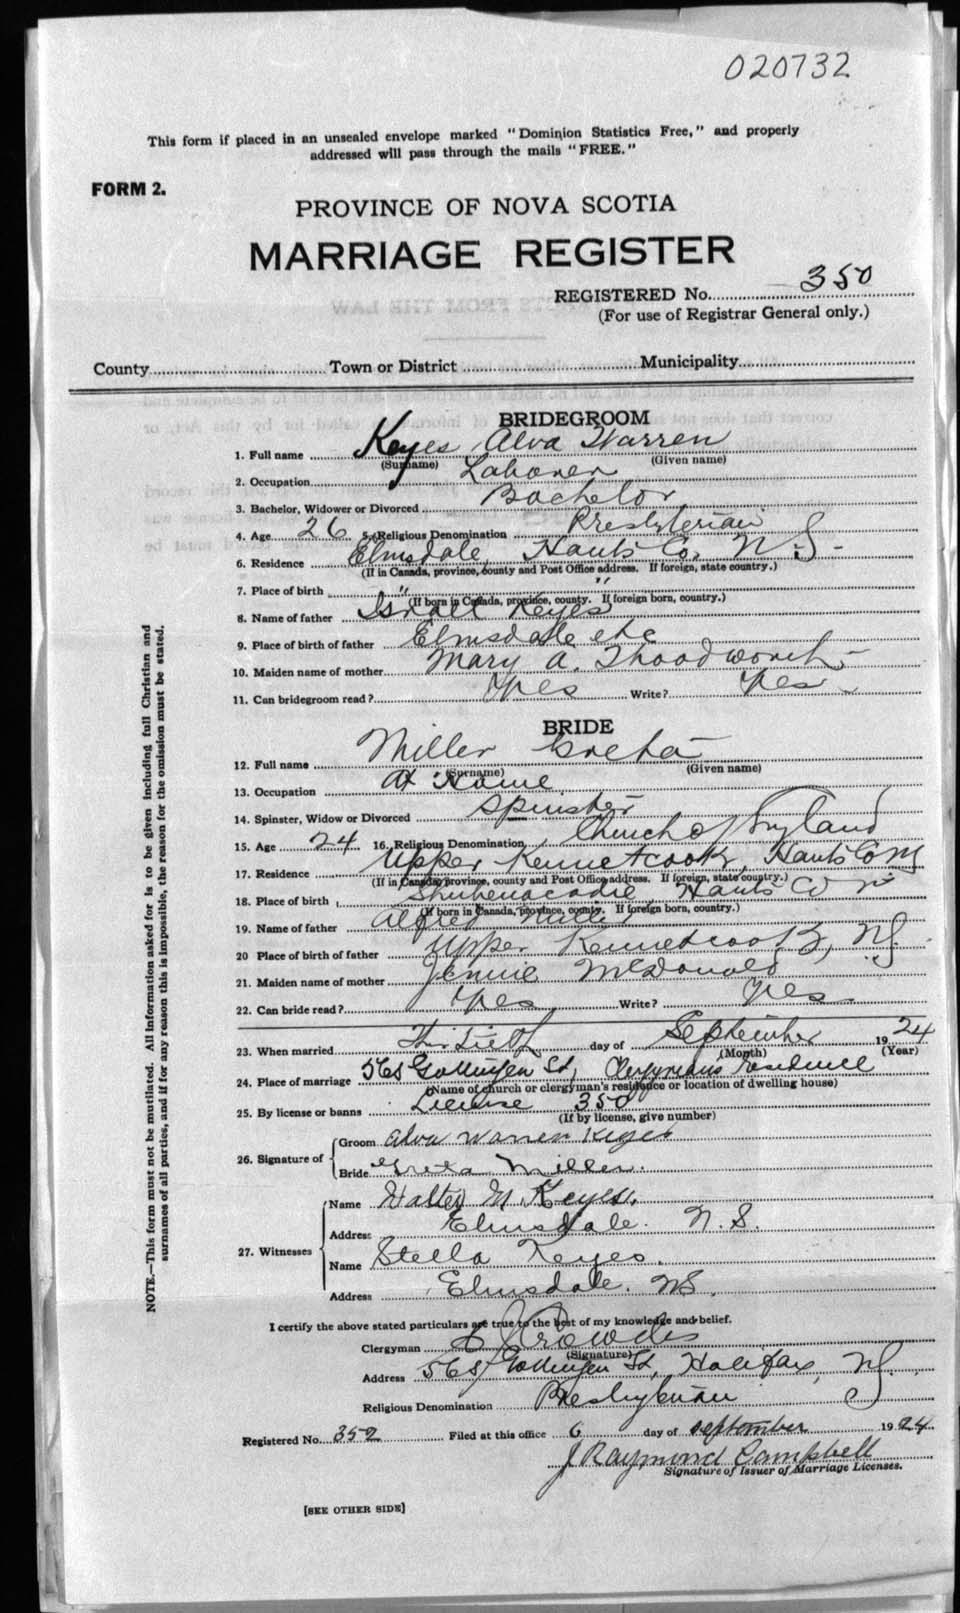 020732
This form if placed in an unsealed envelope marked "Dominion Statistics Free," and properly
addressed will pass through the mails "FREE."
FORM 2.
PROVINCE OF NOVA SCOTIA
MARRIAGE REGISTER
REGISTERED No. 350
(For use of Registrar General only.)
County Town or District Municipality
BRIDEGROOM
1. Full name Keyes Alva Warren
(Surname) (Given name)
2. Occupation Laborer
3. Bachelor, Widower or Divorced Bachelor
4. Age 26 5. Religious Denomination Presbyterian
6. Residence Elmsdale, Hants Co. N.S.
(If in Canada, province, county and Post Office address. If foreign, state country.)
7. Place of birth " "
(If born in Canada, province, county. If foreign born, country.)
8. Name of father Israel Keyes
9. Place of birth of father Elmsdale etc
10. Maiden name of mother Mary A.
11. Can bridegroom read? Yes Write? Yes
BRIDE
12. Full name Miller Greta
(Surname) (Given name)
13. Occupation At Home
14. Spinster, Widow or Divorced Spinster
15. Age 24 16. Religious Denomination Church of England
17. Residence Upper Kennetcook, Hants Co
(If in Canada, province, county and Post Office address. If foreign, state country.)
18. Place of birth Shubenacadie Hants Co
(If born in Canada, province, county. If foreign born, country.)
19. Name of father Alfred Miller
20 Place of birth of father Upper Kennetcook, N.S.
21. Maiden name of mother Jennie McDonald
22. Can bride read? Yes Write? Yes
23. When married day of September 1924
(Month) (Year)
24. Place of marriage 568 Gottingen St, Clergymans residence
(Name of church or clergyman's residence or location of dwelling house)
25. By license or banns License 350
(If by license, give number)
26. Signature of
Groom Alva Warren Keyes
Bride Greta Miller.
27. Witnesses
Name Walter M. Keyes.
Address Elmsdale. N.S.
Name Stella Keyes.
Address Elmsdale. N.S.
I certify the above stated particulars are true to the best of my knowledge and belief.
Clergyman Crowdis
(Signature)
Address 568 Gottingen St, Halifax, N.S.
Religious Denomination Presbyterian
Registered No. 352 Filed at this office 6 day of september 1924
J Raymond Campbell
Signature of Issuer of Marriage Licenses.
[SEE OTHER SIDE]
NOTE.—This form must not be mutilated. All information asked for is to be given including full Christian and
surnames of all parties, and if for any reason this is impossible, the reason for the omission must be stated.